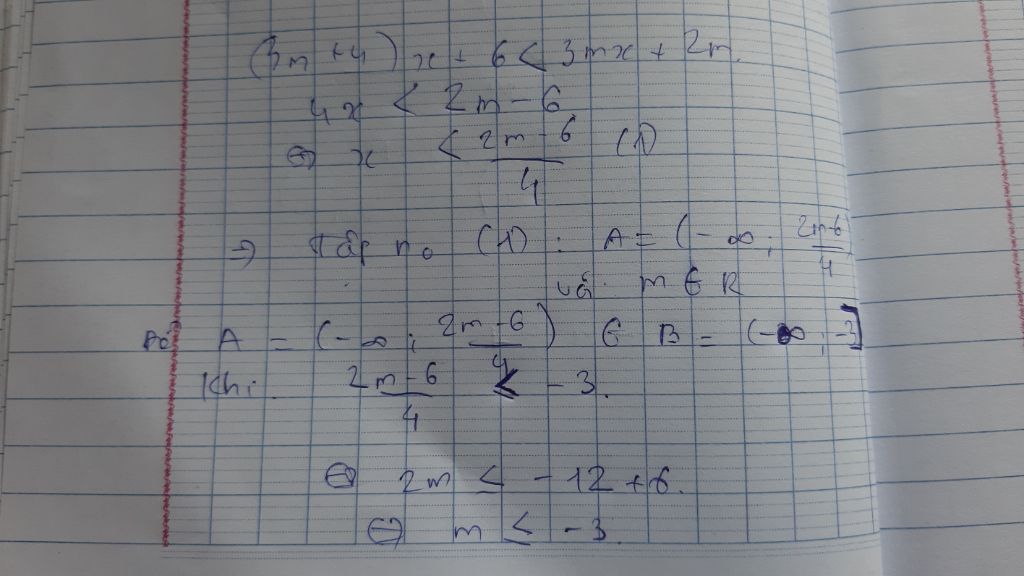 (3m + 4) x + 6 < 3mx + 2m.
4x < 2m - 6
⇔ x < \frac{2m - 6}{4} (1)
⇒ tập no (1) : A = (-∞ ; \frac{2m-6}{4})
và m ∈ R
A = (-∞ ; \frac{2m - 6}{4}) ∈ B = (-∞ ; -3]
Khi \frac{2m - 6}{4} ≤ -3.
⇔ 2m ≤ -12 + 6.
⇔ m ≤ -3.